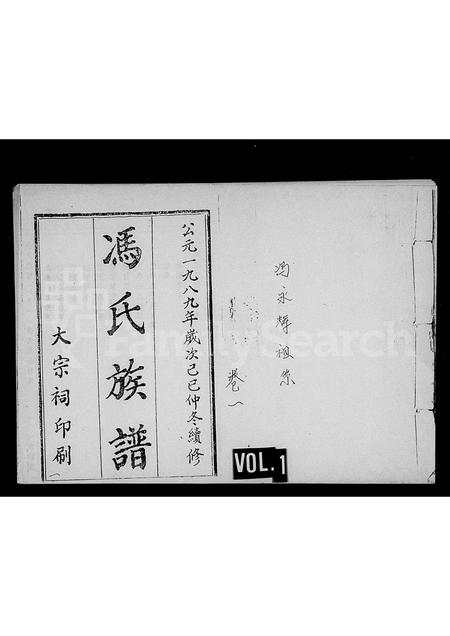 冯永輝祖系
卷一
公元一九八九年歲次己巳仲冬續修
馮氏族譜
大宗祠印刷
VOL. 1
FamilySearch